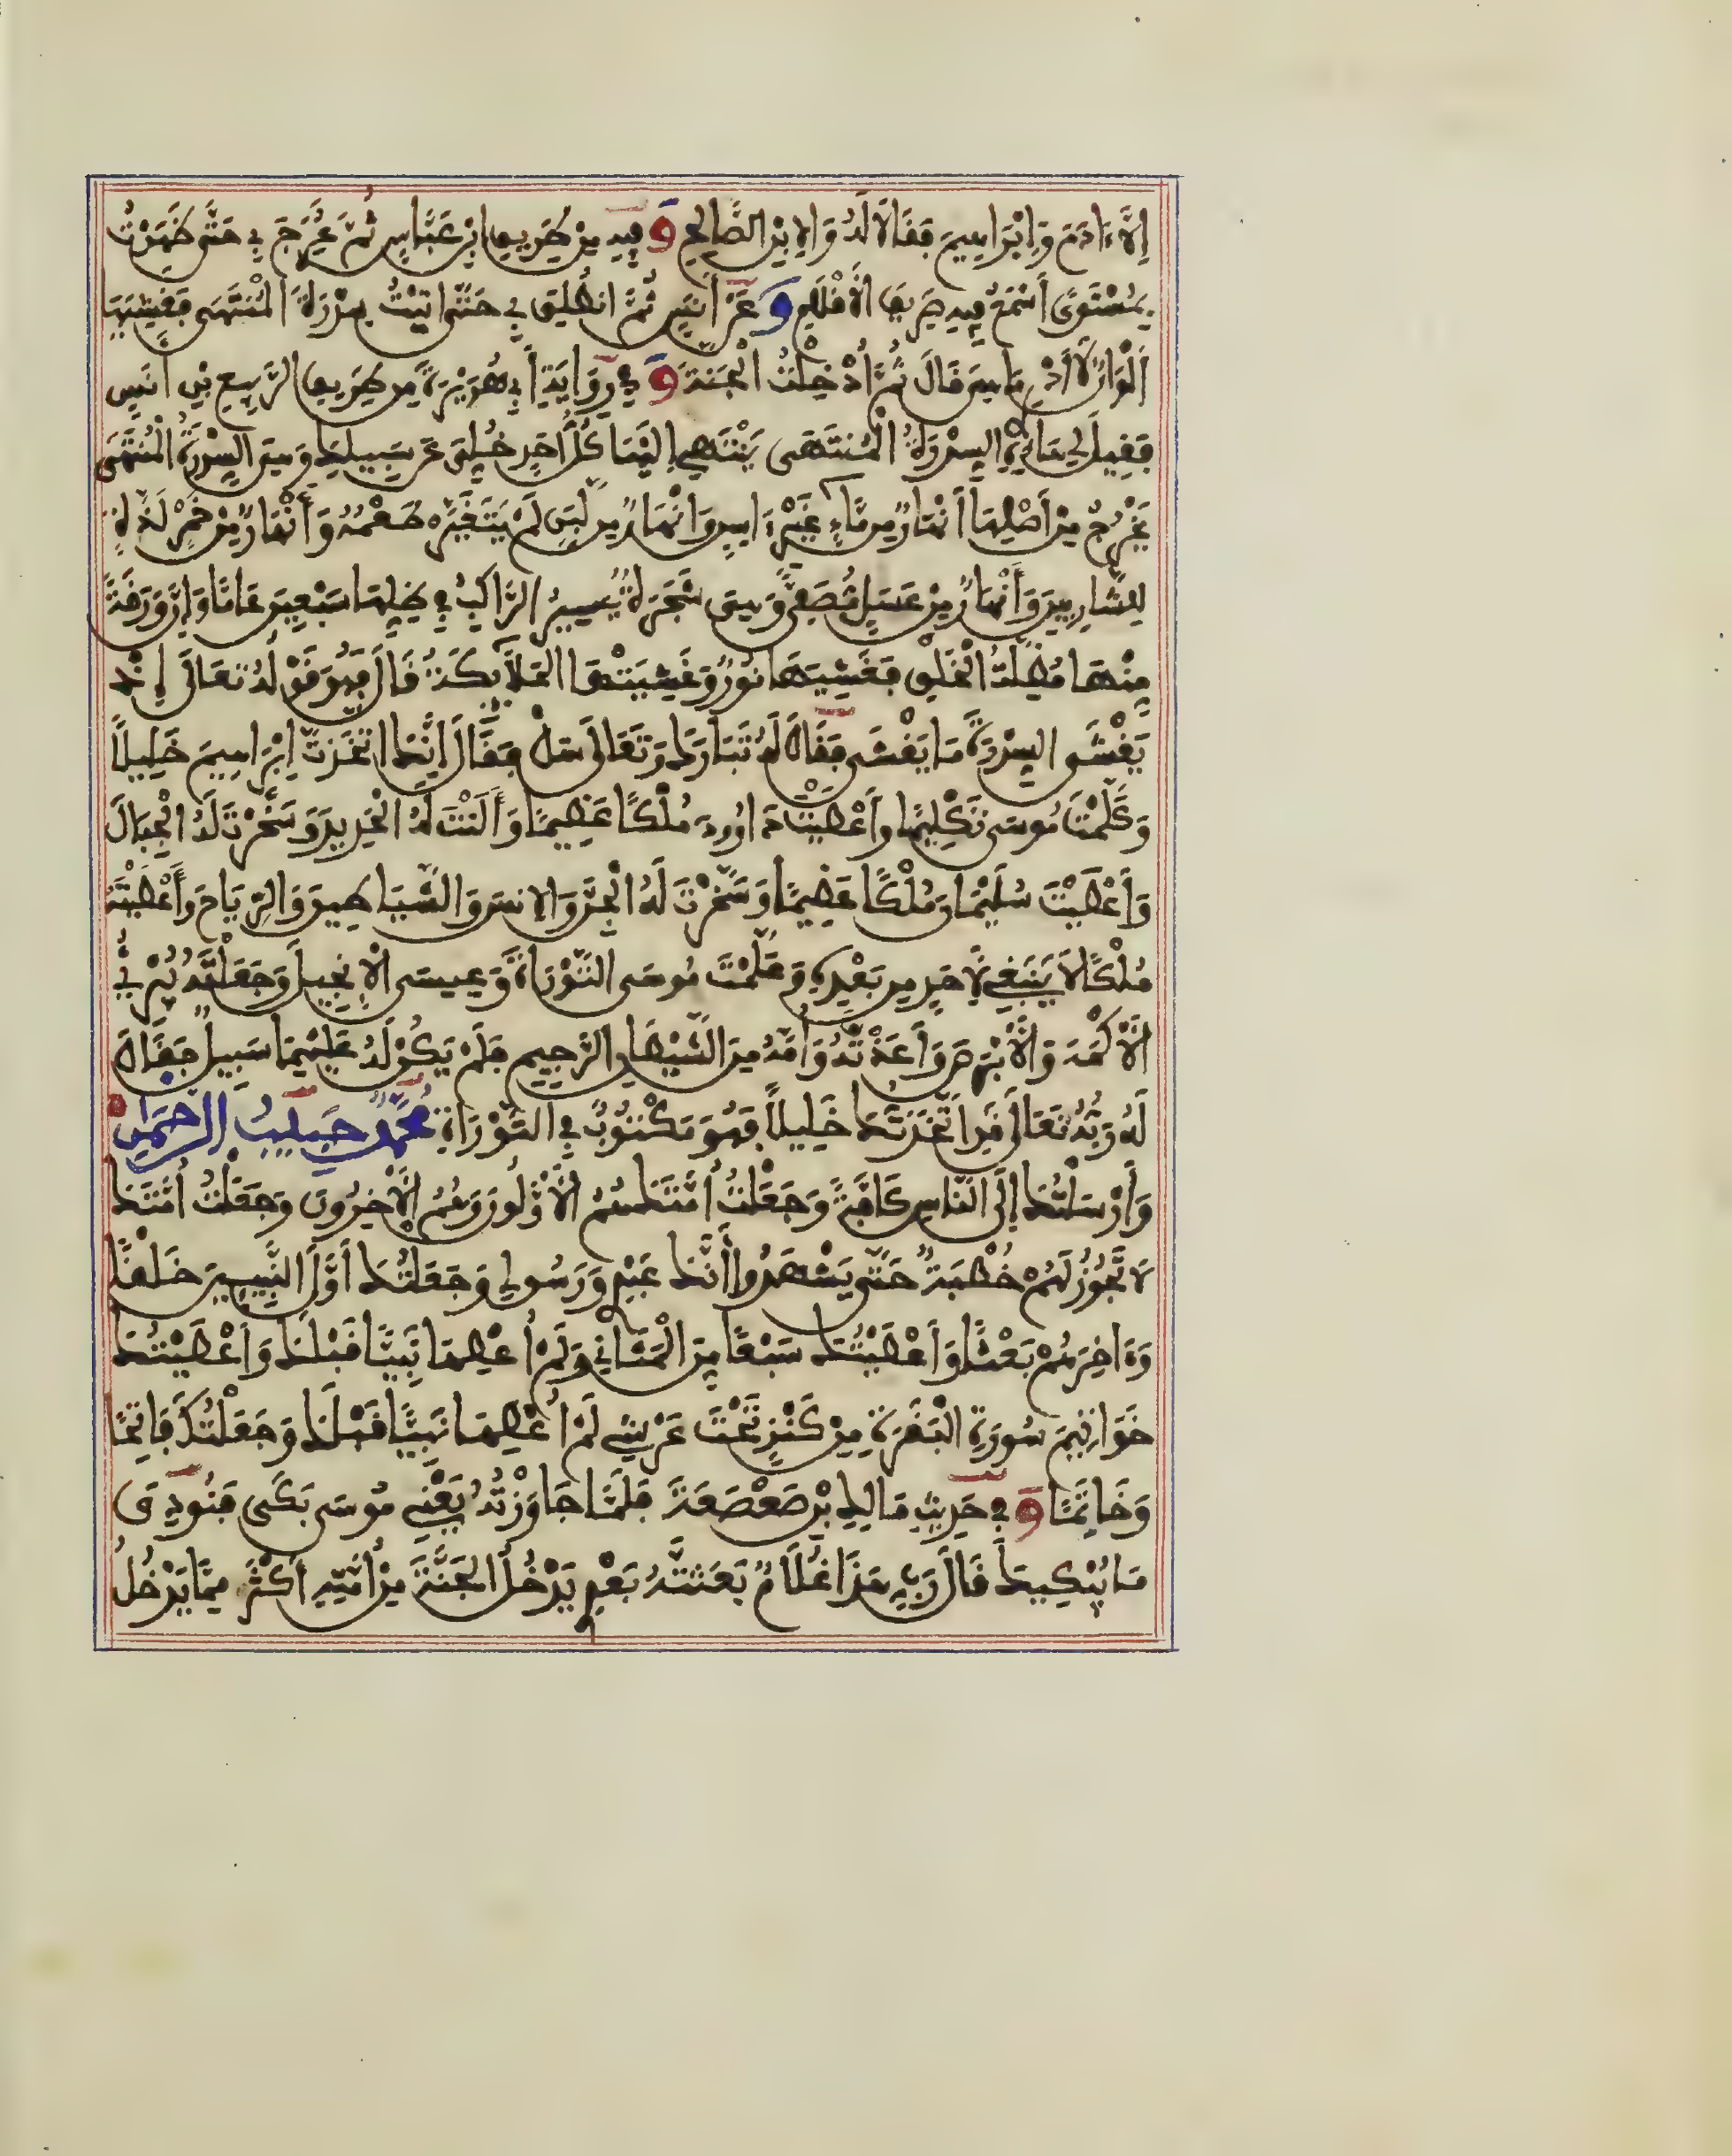 إِلَّا ءَادَمَ وَإِبْرَاهِيمَ فَقَالَا لَهُ وَالِابْنِ الصَّالِحِ وَفِيهِ مِنْ طَرِيقِ ابْنِ عَبَّاسٍ ثُمَّ عُرِجَ بِي حَتَّى ظَهَرْتُ
بِمُسْتَوًى أَسْمَعُ فِيهِ صَرِيفَ الْأَقْلَامِ وَعَنْ أَنَسٍ ثُمَّ انْطُلِقَ بِي حَتَّى أَتَيْتُ سِدْرَةَ الْمُنْتَهَى فَغَشِيَهَا
أَلْوَانٌ لَا أَدْرِي مَا هِيَ قَالَ ثُمَّ أُدْخِلْتُ الْجَنَّةَ وَفِي رِوَايَةِ أَبِي هُرَيْرَةَ مِنْ طَرِيقِ الرَّبِيعِ بْنِ أَنَسٍ
فَقِيلَ لِي هَاذِهِ السِّدْرَةُ الْمُنْتَهَى يَنْتَهِي إِلَيْهَا كُلُّ أَحَدٍ خُلِّيَ عَنْ سَبِيلِكَ وَهِيَ السِّدْرَةُ الْمُنْتَهَى
يَخْرُجُ مِنْ أَصْلِهَا أَنْهَارٌ مِنْ مَّاءٍ غَيْرِ ءَاسِنٍ وَأَنْهَارٌ مِنْ لَبَنٍ لَمْ يَتَغَيَّرْ طَعْمُهُ وَأَنْهَارٌ مِنْ خَمْرٍ لَذَّةٍ
لِلشَّارِبِينَ وَأَنْهَارٌ مِنْ عَسَلٍ مُصَفًّى وَهِيَ شَجَرَةٌ يَسِيرُ الرَّاكِبُ فِي ظِلِّهَا سَبْعِينَ عَامًا وَإِنَّ وَرَقَةً
مِنْهَا مُظِلَّةُ الْخَلْقِ فَغَشِيَهَا نُورٌ وَغَشِيَتْهَا الْمَلَائِكَةُ قَالَ فَهُوَ قَوْلُهُ تَعَالَى إِذْ
يَغْشَى السِّدْرَةَ مَا يَغْشَى فَقَالَ لَهُ تَبَارَكَ وَتَعَالَى سَلْ فَقَالَ إِنَّكَ اتَّخَذْتَ إِبْرَاهِيمَ خَلِيلًا
وَكَلَّمْتَ مُوسَى تَكْلِيمًا وَأَعْطَيْتَ دَاوُودَ مُلْكًا عَظِيمًا وَأَلَنْتَ لَهُ الْحَدِيدَ وَسَخَّرْتَ لَهُ الْجِبَالَ
وَأَعْطَيْتَ سُلَيْمَانَ مُلْكًا عَظِيمًا وَسَخَّرْتَ لَهُ الْجِنَّ وَالْإِنسَ وَالشَّيَاطِينَ وَالرِّيَاحَ وَأَعْطَيْتَهُ
مُلْكًا لَا يَنبَغِي لِأَحَدٍ مِن بَعْدِهِ وَعَلَّمْتَ مُوسَى التَّوْرَاةَ وَعِيسَى الْإِنجِيلَ وَجَعَلْتَهُ يُبْرِئُ
الْأَكْمَهَ وَالْأَبْرَصَ وَأَعَذْتَهُ وَأُمَّهُ مِنَ الشَّيْطَانِ الرَّجِيمِ فَلَمْ يَكُن لَهُ عَلَيْهِمَا سَبِيلٌ فَقَالَ
لَهُ رَبُّهُ تَعَالَى قَدِ اتَّخَذْتُكَ خَلِيلًا فَهُوَ مَكْتُوبٌ فِي التَّوْرَاةِ مُحَمَّدٌ حَبِيبُ الرَّحْمَانِ
وَأَرْسَلْتُكَ إِلَى النَّاسِ كَافَّةً وَجَعَلْتُ أُمَّتَكَ هُمُ الْأَوَّلُونَ وَهُمُ الْآخِرُونَ وَجَعَلْتُ أُمَّتَكَ
لَا تَجُوزُ لَهُمْ خُطْبَةٌ حَتَّى يَشْهَدُوا أَنَّكَ عَبْدِي وَرَسُولِي وَجَعَلْتُكَ أَوَّلَ النَّبِيِّينَ خَلْقًا
وَءَاخِرَهُمْ بَعْثًا وَأَعْطَيْتُكَ سَبْعًا مِنَ الْمَثَانِي وَلَمْ أُعْطِهَا نَبِيًّا قَبْلَكَ وَأَعْطَيْتُكَ
خَوَاتِيمَ سُورَةِ الْبَقَرَةِ مِنْ كَنْزٍ تَحْتَ عَرْشِي لَمْ أُعْطِهَا نَبِيًّا قَبْلَكَ وَجَعَلْتُكَ فَاتِحًا
وَخَاتِمًا وَفِي حَدِيثِ مَالِكِ بْنِ صَعْصَعَةَ فَلَمَّا جَاوَزْتُهُ يَعْنِي مُوسَى بَكَى فَنُودِيَ
مَا يُبْكِيكَ قَالَ رَبِّ هَذَا غُلَامٌ بَعَثْتَهُ بَعْدِي يَدْخُلُ الْجَنَّةَ مِنْ أُمَّتِهِ أَكْثَرُ مِمَّا يَدْخُلُ